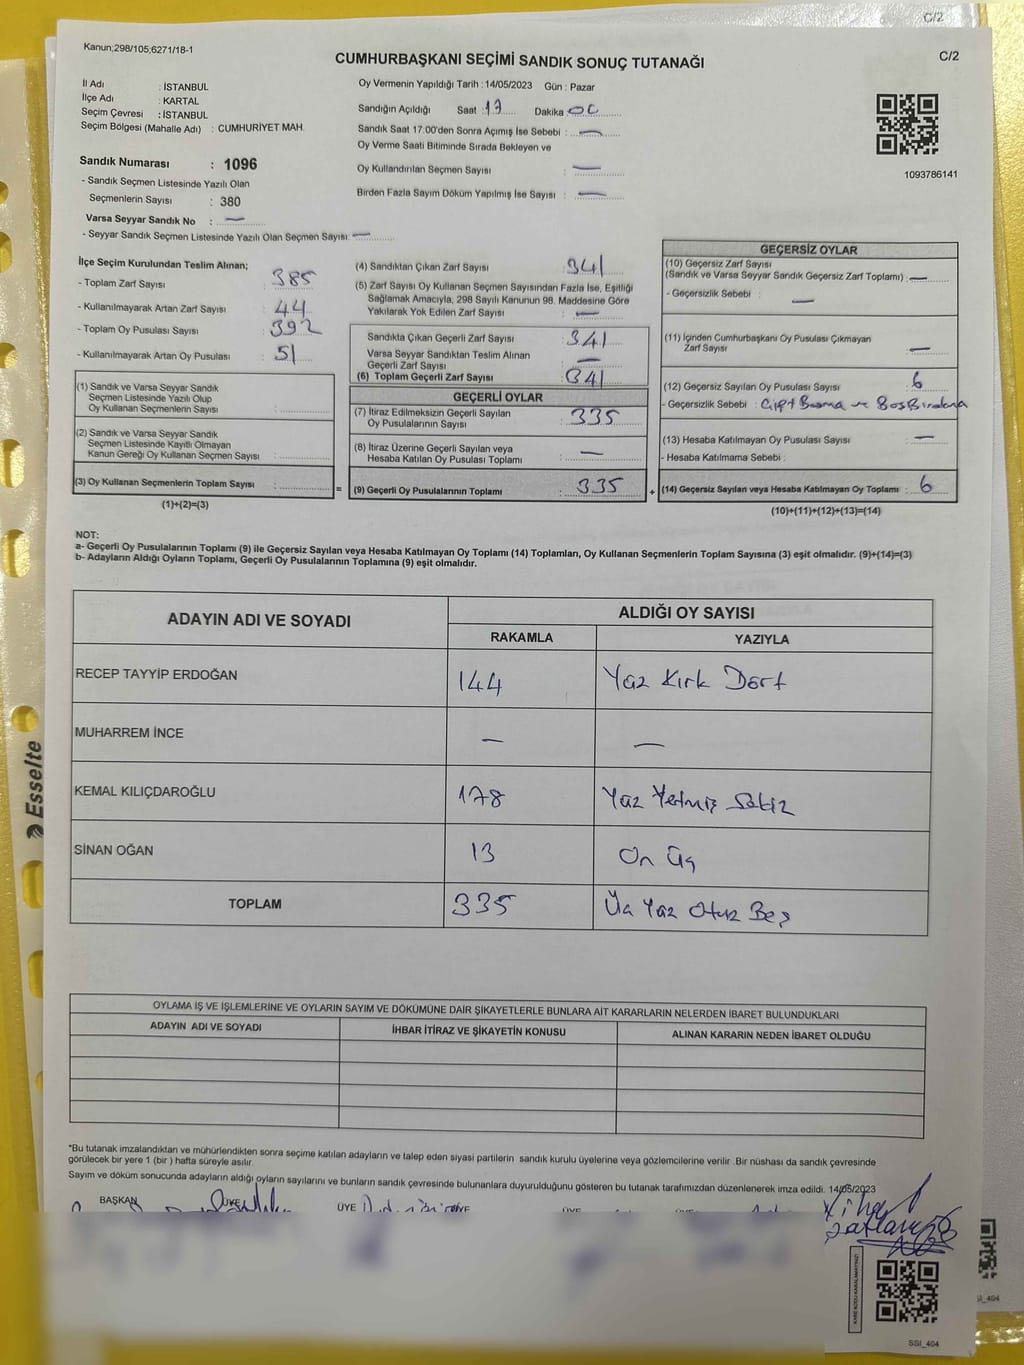 C/2
Kanun;298/105;6271/18-1
CUMHURBAŞKANI SEÇİMİ SANDIK SONUÇ TUTANAĞI
C/2
İl Adı : İSTANBUL
İlçe Adı : KARTAL
Seçim Çevresi : İSTANBUL
Seçim Bölgesi (Mahalle Adı) : CUMHURİYET MAH.
Sandık Numarası : 1096
- Sandık Seçmen Listesinde Yazılı Olan
Seçmenlerin Sayısı : 380
Varsa Seyyar Sandık No : —
- Seyyar Sandık Seçmen Listesinde Yazılı Olan Seçmen Sayısı: —
Oy Vermenin Yapıldığı Tarih : 14/05/2023 Gün : Pazar
Sandığın Açıldığı Saat : 17 Dakika : 00
Sandık Saat 17.00'den Sonra Açımış İse Sebebi : —
Oy Verme Saati Bitiminde Sırada Bekleyen ve
Oy Kullandırılan Seçmen Sayısı : —
Birden Fazla Sayım Döküm Yapılmış İse Sayısı : —
1093786141
İlçe Seçim Kurulundan Teslim Alınan;
- Toplam Zarf Sayısı : 385
- Kullanılmayarak Artan Zarf Sayısı : 44
- Toplam Oy Pusulası Sayısı : 392
- Kullanılmayarak Artan Oy Pusulası : 51
(1) Sandık ve Varsa Seyyar Sandık
Seçmen Listesinde Yazılı Olup
Oy Kullanan Seçmenlerin Sayısı :
(2) Sandık ve Varsa Seyyar Sandık
Seçmen Listesinde Kayıtlı Olmayan
Kanun Gereği Oy Kullanan Seçmen Sayısı :
(3) Oy Kullanan Seçmenlerin Toplam Sayısı :
(1)+(2)=(3)
(4) Sandıktan Çıkan Zarf Sayısı : 341
(5) Zarf Sayısı Oy Kullanan Seçmen Sayısından Fazla İse, Eşitliği
Sağlamak Amacıyla, 298 Sayılı Kanunun 98. Maddesine Göre
Yakılarak Yok Edilen Zarf Sayısı : —
Sandıkta Çıkan Geçerli Zarf Sayısı : 341
Varsa Seyyar Sandıktan Teslim Alınan
Geçerli Zarf Sayısı : —
(6) Toplam Geçerli Zarf Sayısı : 341
GEÇERLİ OYLAR
(7) İtiraz Edilmeksizin Geçerli Sayılan
Oy Pusulalarının Sayısı : 335
(8) İtiraz Üzerine Geçerli Sayılan veya
Hesaba Katılan Oy Pusulası Toplamı : —
= (9) Geçerli Oy Pusulalarının Toplamı : 335
GEÇERSİZ OYLAR
(10) Geçersiz Zarf Sayısı
(Sandık ve Varsa Seyyar Sandık Geçersiz Zarf Toplamı) : —
- Geçersizlik Sebebi : —
(11) İçinden Cumhurbaşkanı Oy Pusulası Çıkmayan
Zarf Sayısı : —
(12) Geçersiz Sayılan Oy Pusulası Sayısı : 6
- Geçersizlik Sebebi : Çift Basma ve Boş Bırakma
(13) Hesaba Katılmayan Oy Pusulası Sayısı : —
- Hesaba Katılmama Sebebi :
+ (14) Geçersiz Sayılan veya Hesaba Katılmayan Oy Toplamı : 6
(10)+(11)+(12)+(13)=(14)
NOT:
a- Geçerli Oy Pusulalarının Toplamı (9) ile Geçersiz Sayılan veya Hesaba Katılmayan Oy Toplamı (14) Toplamları, Oy Kullanan Seçmenlerin Toplam Sayısına (3) eşit olmalıdır. (9)+(14)=(3)
b- Adayların Aldığı Oyların Toplamı, Geçerli Oy Pusulalarının Toplamına (9) eşit olmalıdır.
ADAYIN ADI VE SOYADI ALDIĞI OY SAYISI
RAKAMLA YAZIYLA
RECEP TAYYİP ERDOĞAN 144 Yüz Kırk Dört
MUHARREM İNCE — —
KEMAL KILIÇDAROĞLU 178 Yüz Yetmiş Sekiz
SİNAN OĞAN 13 On Üç
TOPLAM 335 Üç Yüz Otuz Beş
OYLAMA İŞ VE İŞLEMLERİNE VE OYLARIN SAYIM VE DÖKÜMÜNE DAİR ŞİKAYETLERLE BUNLARA AİT KARARLARIN NELERDEN İBARET BULUNDUKLARI
ADAYIN ADI VE SOYADI İHBAR İTİRAZ VE ŞİKAYETİN KONUSU ALINAN KARARIN NEDEN İBARET OLDUĞU
*Bu tutanak imzalandıktan ve mühürlendikten sonra seçime katılan adayların ve talep eden siyasi partilerin sandık kurulu üyelerine veya gözlemcilerine verilir .Bir nüshası da sandık çevresinde
görülecek bir yere 1 (bir ) hafta süreyle asılır.
Sayım ve döküm sonucunda adayların aldığı oyların sayılarını ve bunların sandık çevresinde bulunanlara duyurulduğunu gösteren bu tutanak tarafımızdan düzenlenerek imza edildi. 14/05/2023
BAŞKAN ÜYE ÜYE ÜYE ÜYE ÜYE
SSI_404
Esselte